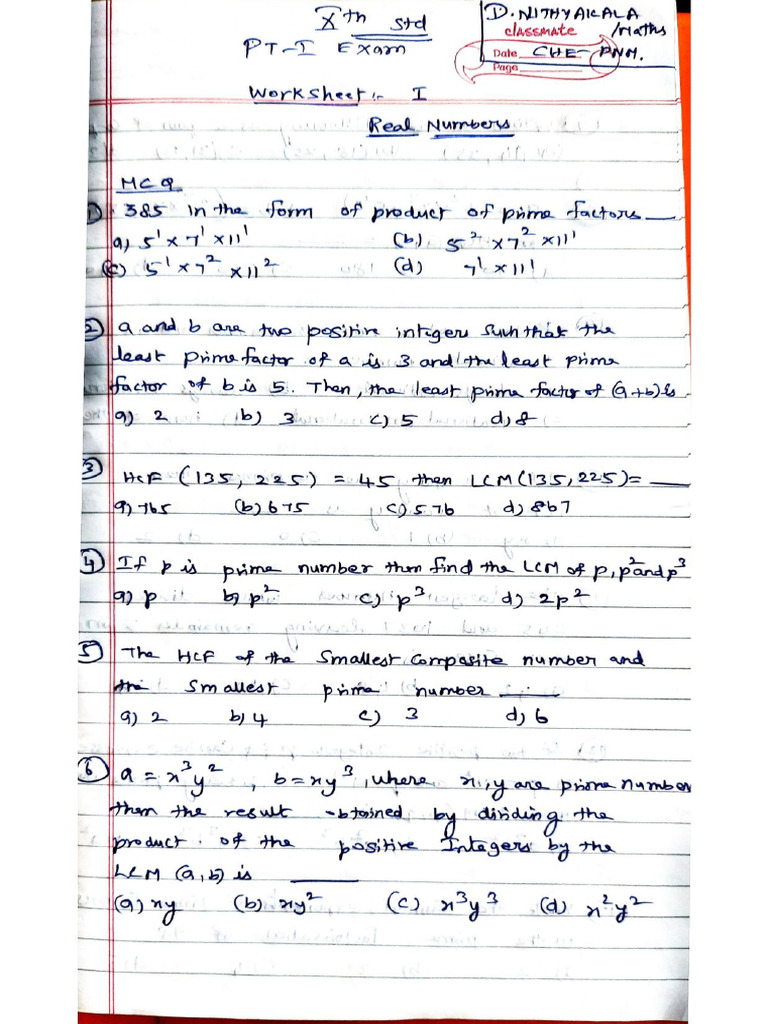 Xth Std
PT-I Exam
D. NITHYAKALA
classmate /Maths
Date CHE- PNM.
Page
Worksheet :- I
Real Numbers
MCQ
1) 385 in the form of product of prime factors __
a) 5¹ x 7¹ x 11¹ (b) 5² x 7² x 11¹
(c) 5¹ x 7² x 11² (d) 7¹ x 11¹
2) a and b are two positive integers such that the
least prime factor of a is 3 and the least prime
factor of b is 5. Then, the least prime factor of (a+b) is
a) 2 b) 3 c) 5 d) 8
3) HCF (135, 225) = 45 then LCM (135, 225) = __
a) 765 (b) 675 c) 576 d) 867
4) If p is prime number then find the LCM of p, p² and p³
a) p b) p² c) p³ d) 2p²
5) The HCF of the Smallest Composite number and
the Smallest prime number ____
a) 2 b) 4 c) 3 d) 6
6) a = x³y², b = xy³, where x, y are prime number
then the result obtained by dividing the
product of the positive Integers by the
LCM (a, b) is ____
(a) xy (b) xy² (c) x³y³ (d) x²y²